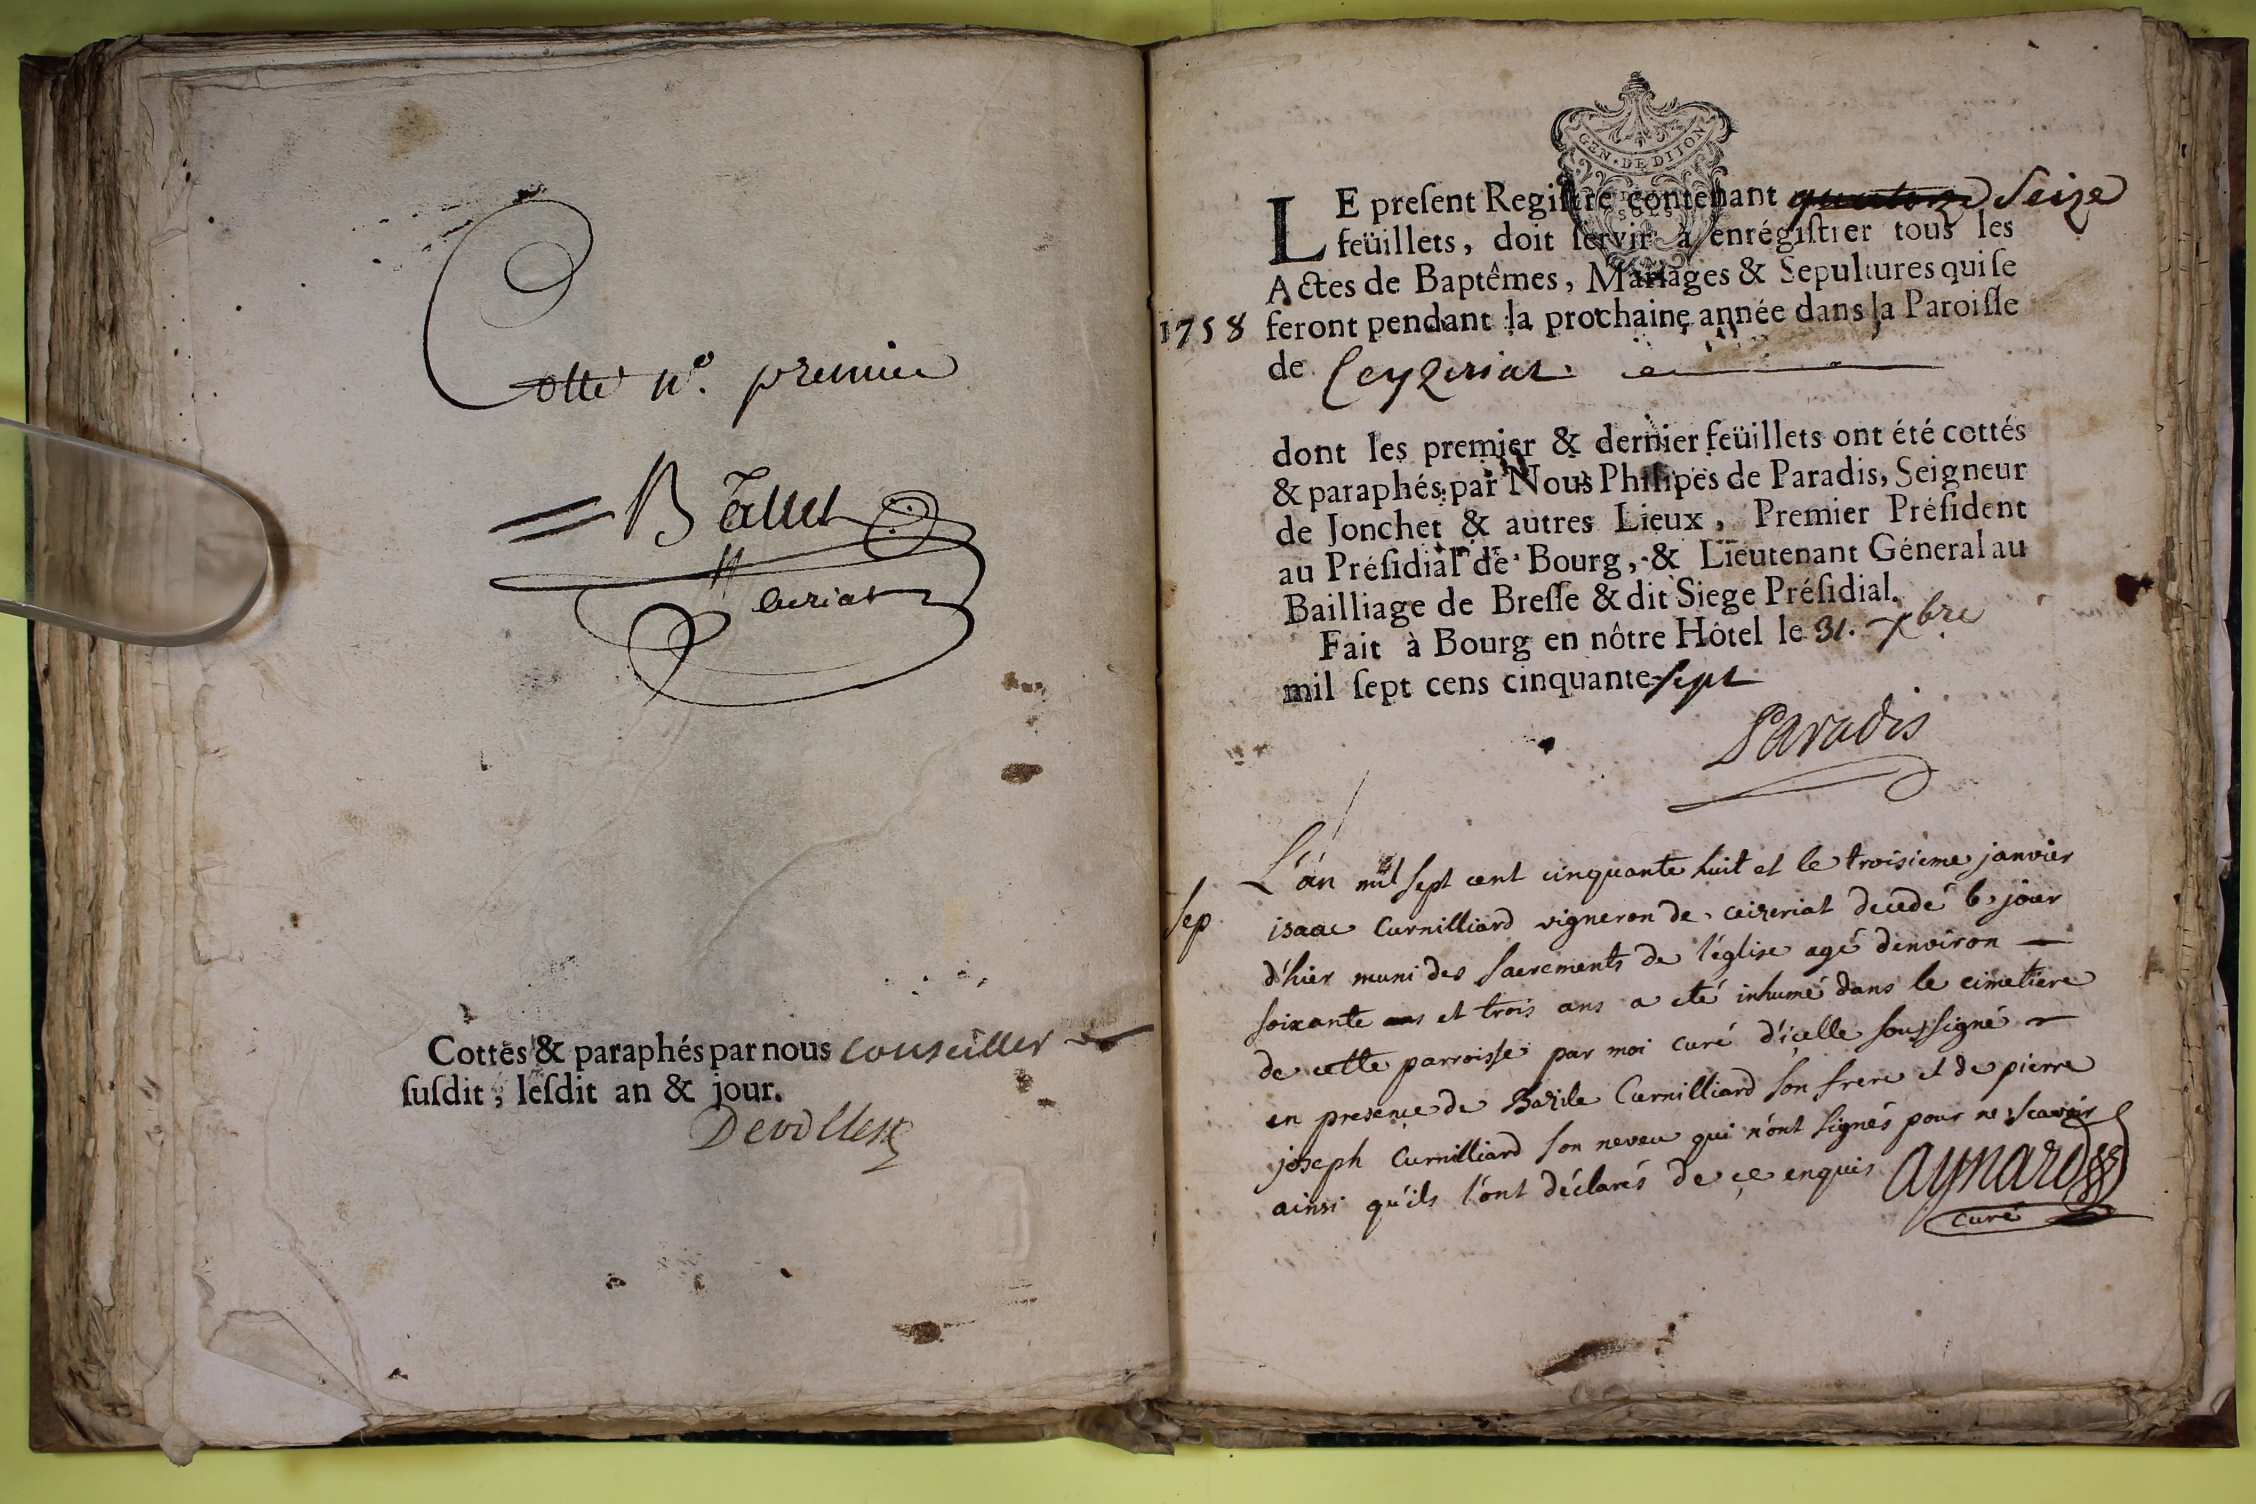 Cotte n.º premier
Cottés & paraphés par nous conseiller
susdit, lesdit an & jour.
GEN · DE DIION
LE preſent Regiſtre contenant quatorze Seize
feüillets, doit ſervir à enrégiſtrer tous les
Actes de Baptêmes, Mariages & Sepultures qui ſe
1758 feront pendant la prochaine année dans la Paroiſſe
de Ceyzeriat.
dont les premier & dernier feüillets ont été cottés
& paraphés par Nous Philipes de Paradis, Seigneur
de Jonchet & autres Lieux, Premier Préſident
au Préſidial de Bourg, & Lieutenant Géneral au
Bailliage de Breſſe & dit Siege Préſidial.
Fait à Bourg en nôtre Hôtel le 31. xbre
mil ſept cens cinquante sept
Paradis
L'an mil sept cent cinquante huit et le troisieme janvier
Sep. isaac Curnilliard vigneron de ceizeriat decedé le jour
d'hier muni des sacrements de l'église agé denviron
soixante ans et trois ans a eté inhumé dans le cimetiere
de cette parroisse par moi curé d'içelle soussigné
en presençe de Bazile Curnilliard son frere et de pierre
joseph Curnilliard son neveu qui n'ont signés pour ne scavoir
ainsi qu'ils l'ont déclarés de çe enquis aynard
curé